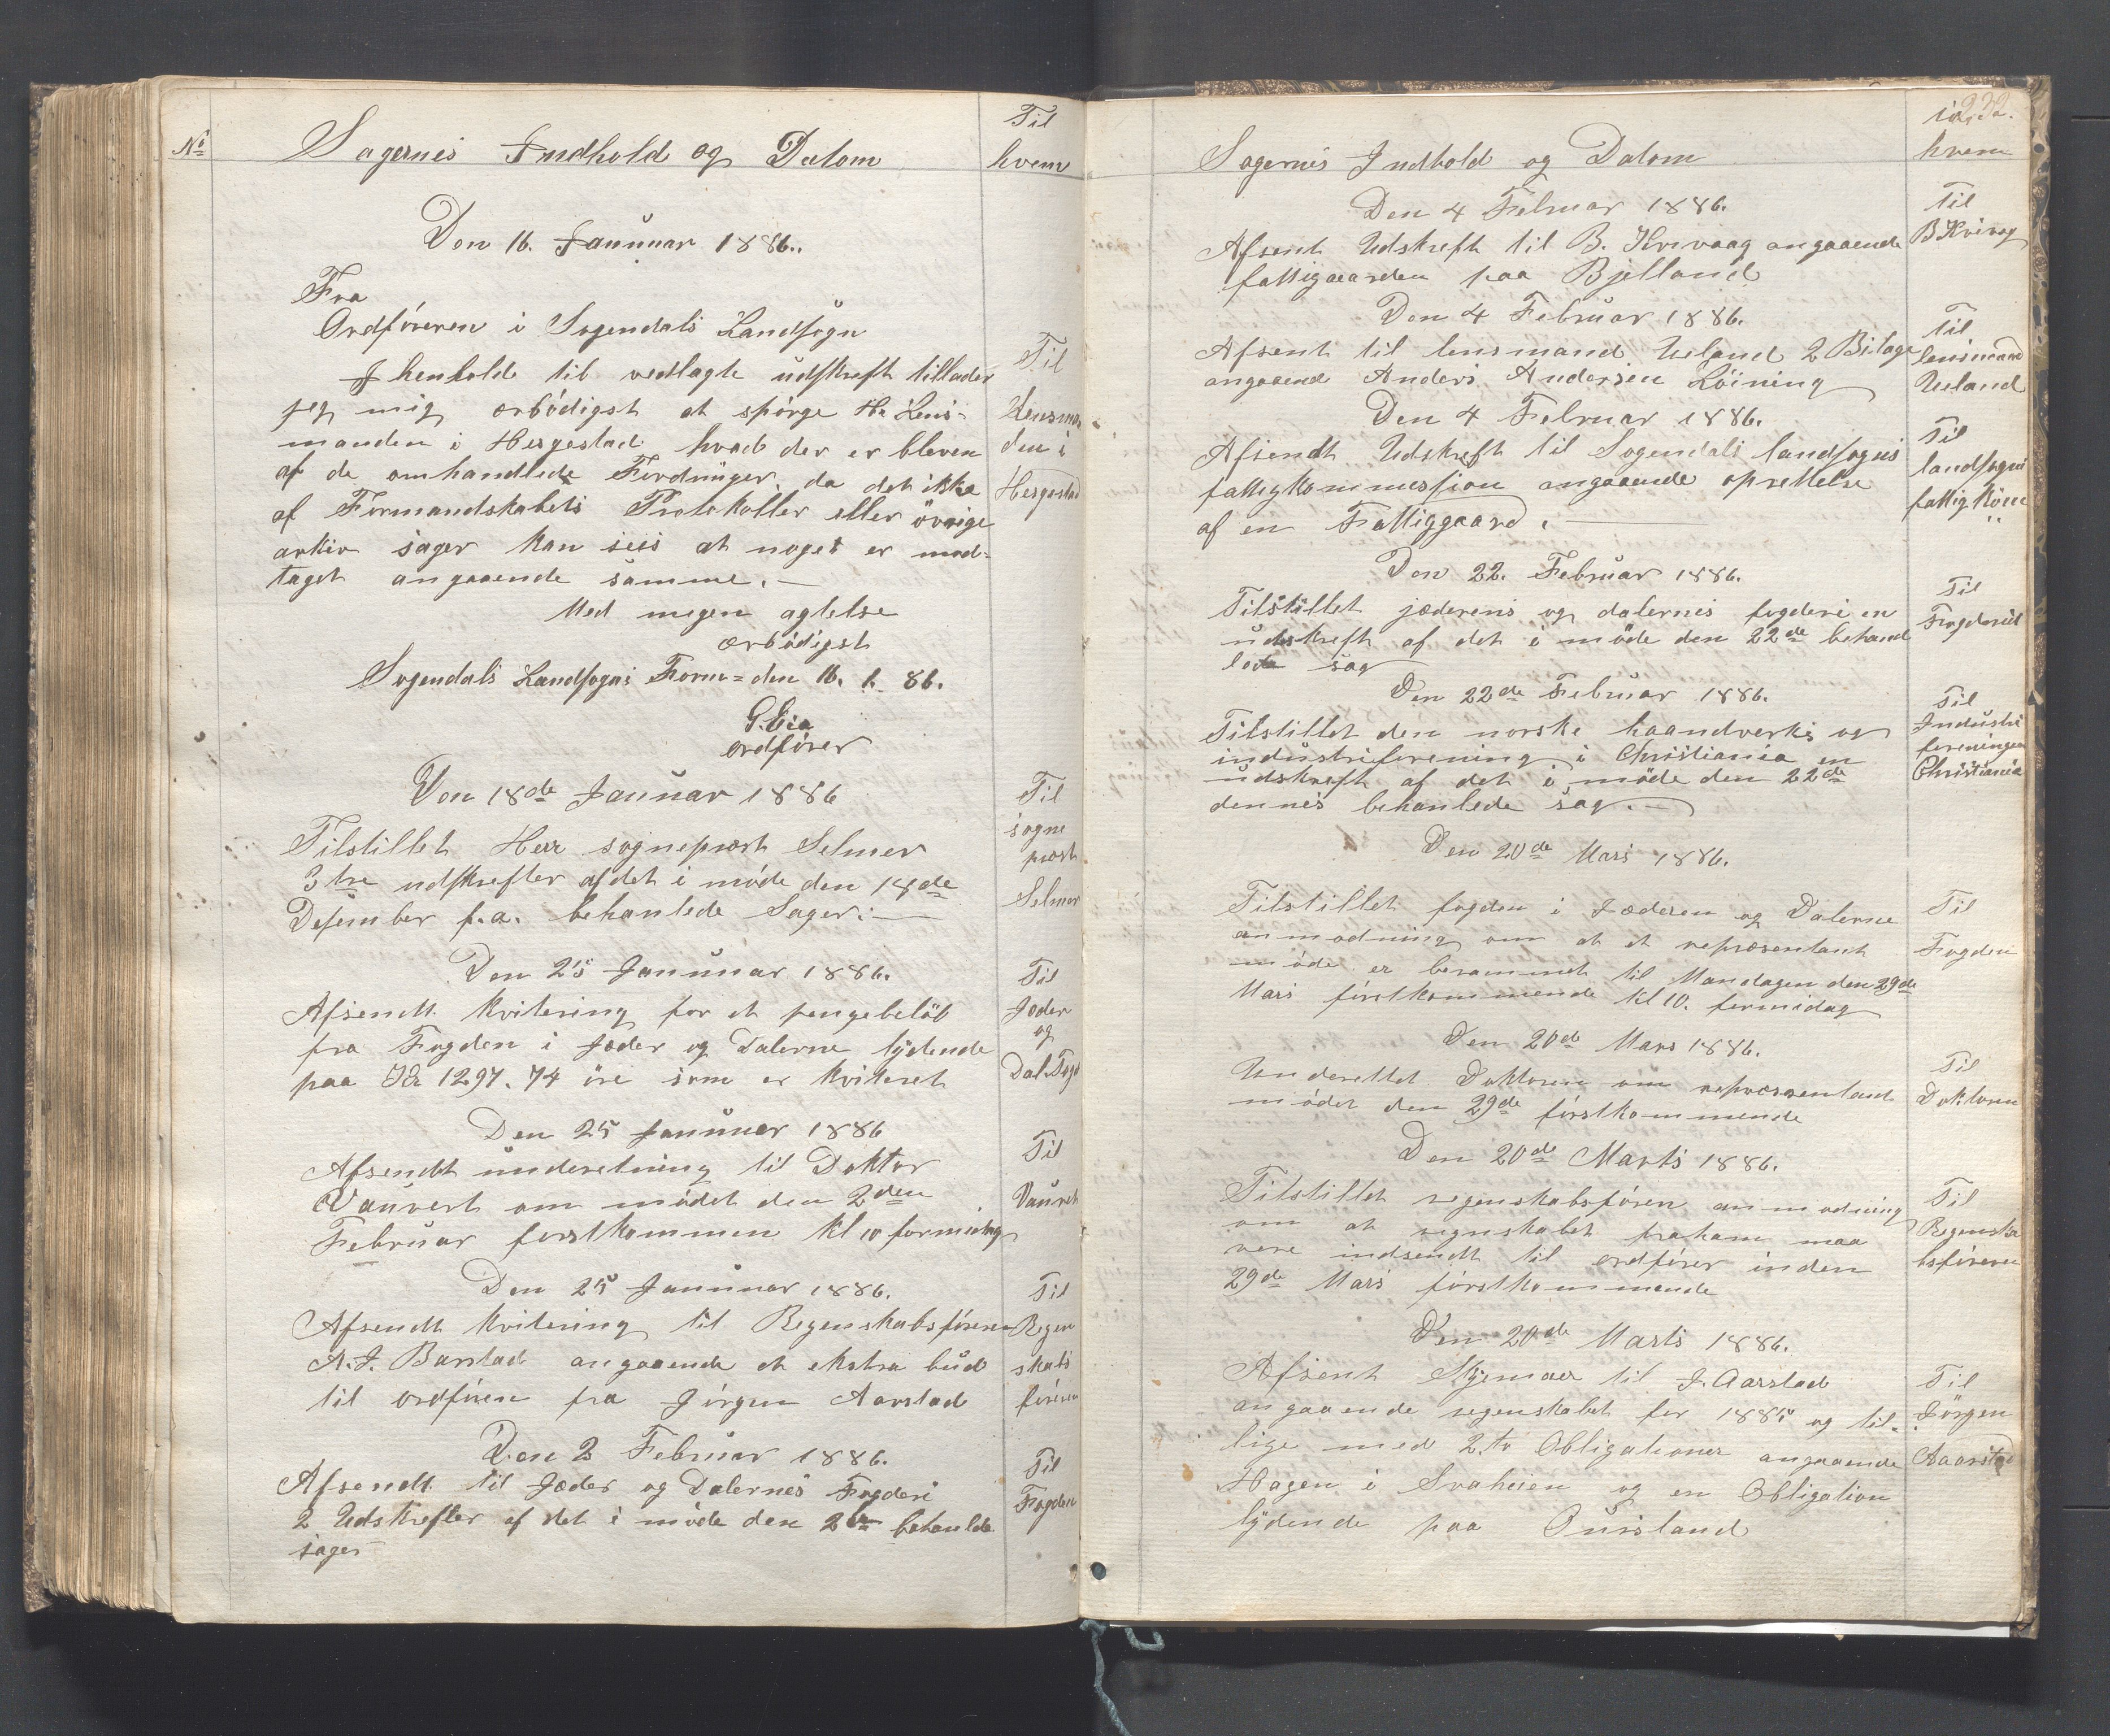 No Sagernes Indhold og Datom Til
hvem
Den 16. Januuar 1886.
Fra
Ordføreren i Sogendals Landsogn
I henhold til vedlagte udskreft tillader
jeg mig ærbödigst at spörge Hr Lens=
manden i Hesgestad hvad der er bleven
af de omhandlede Fordringer, da det ikke
af Formandskabets Protokoller eller övrige
arkiv sager kan sees at noget er mod=
taget angaaende samme. —
Med megen agtelse
ærbödigst
Sogendals Landsogns Form= den 16. 1. 86.
G. Eia
ordfører
Til
Lensman
den i
Hesgestad
Den 18de Januar 1886
Tilstillet Herr sogneprest Selmer
3 tre udskrefter af det i møde den 18de
Desember f. a. behanlede Sager. —
Til
sogne
prest
Selmer
Den 25 Januuar 1886.
Afsendt kvitering for et pengebelöb
fra Fogden i Jæder og Dalerne lÿdende
paa Kr 1297. 74 öre som er kviteret
Til
Jæder
og
Dal. Fogd
Den 25 Januuar 1886
Afsendt underetning til Doktor
Vauvert om mödet den 2den
Februar forstkommen kl 10 formidag
Til
Vauvert
Den 25 Januuar 1886.
Afsendt kvitering til Regenskabsföreren
A. J. Barstad angaaende et ekstra bud
til ordfören fra Jörgen Aarstad
Til
Regen
skabs
föreren
Den 3 Februar 1886.
Afsendt til Jæder og Dalernes Fogderi
2 Udskrefter af det i möde den 2den behanlde
sager
Til
Fogden
232.
Sagernes Indhold og Datom til
hvem
Den 4 Februar 1886.
Afsent Udskreft til B. Kvivaag angaaende
fattigaarden paa Bjelland
Til
B Kvivag
Den 4 Februar 1886.
Afsent til lensmand Ueland 2 Bilage
angaaend Anders Andersen Löining
Til
lensmand
Ueland
Den 4 Februar 1886.
Afsendt Udskreft til Sogendals landsogns
fattigkommession angaaende oprettelse
af en Fattiggaard. —
Til
landsogns
fattig köm
Den 22. Februar 1886.
Tilstillet jæderens og dalernes fogderi en
udskreft af det i möde den 22de behand
lede sag
Til
Fogderiet
Den 22de Februar 1886.
Tilstillet den norske haandverks og
industriforening i Christiania en
udskreft af det i möde den 22de
dennes behanlede sag. —
Til
Industri
foreningen
Christiania
Den 20de Mars 1886.
Tilstillet fogden i Jæderen og Dalerne
anmodning om at et represæntant
möde er berammet til Mandagen den 29de
Mars förstkommende kl 10. formidag
Til
Fogden
Den 20de Mars 1886.
Underettet Doktoren om represæntant
mödet den 29de förstkommende
Til
Doktoren
Den 20de Marts 1886.
Tilstillet regenskabsfören anmodning
om at regnskabet fraham maa
vere indsendt til ordförer inden
29de Mars förstkommende
Til
Regenska
bsföreren
Den 20de Marts 1886.
Afsent Skjemaer til J. Aarstad
angaaende regenskabet for 1885 og til-
lige med 2 to Obligationer angaaende
Hagen i Svaheien og en Obligation
lÿdende paa Öuisland
Til
Jörgen
Aaarstad